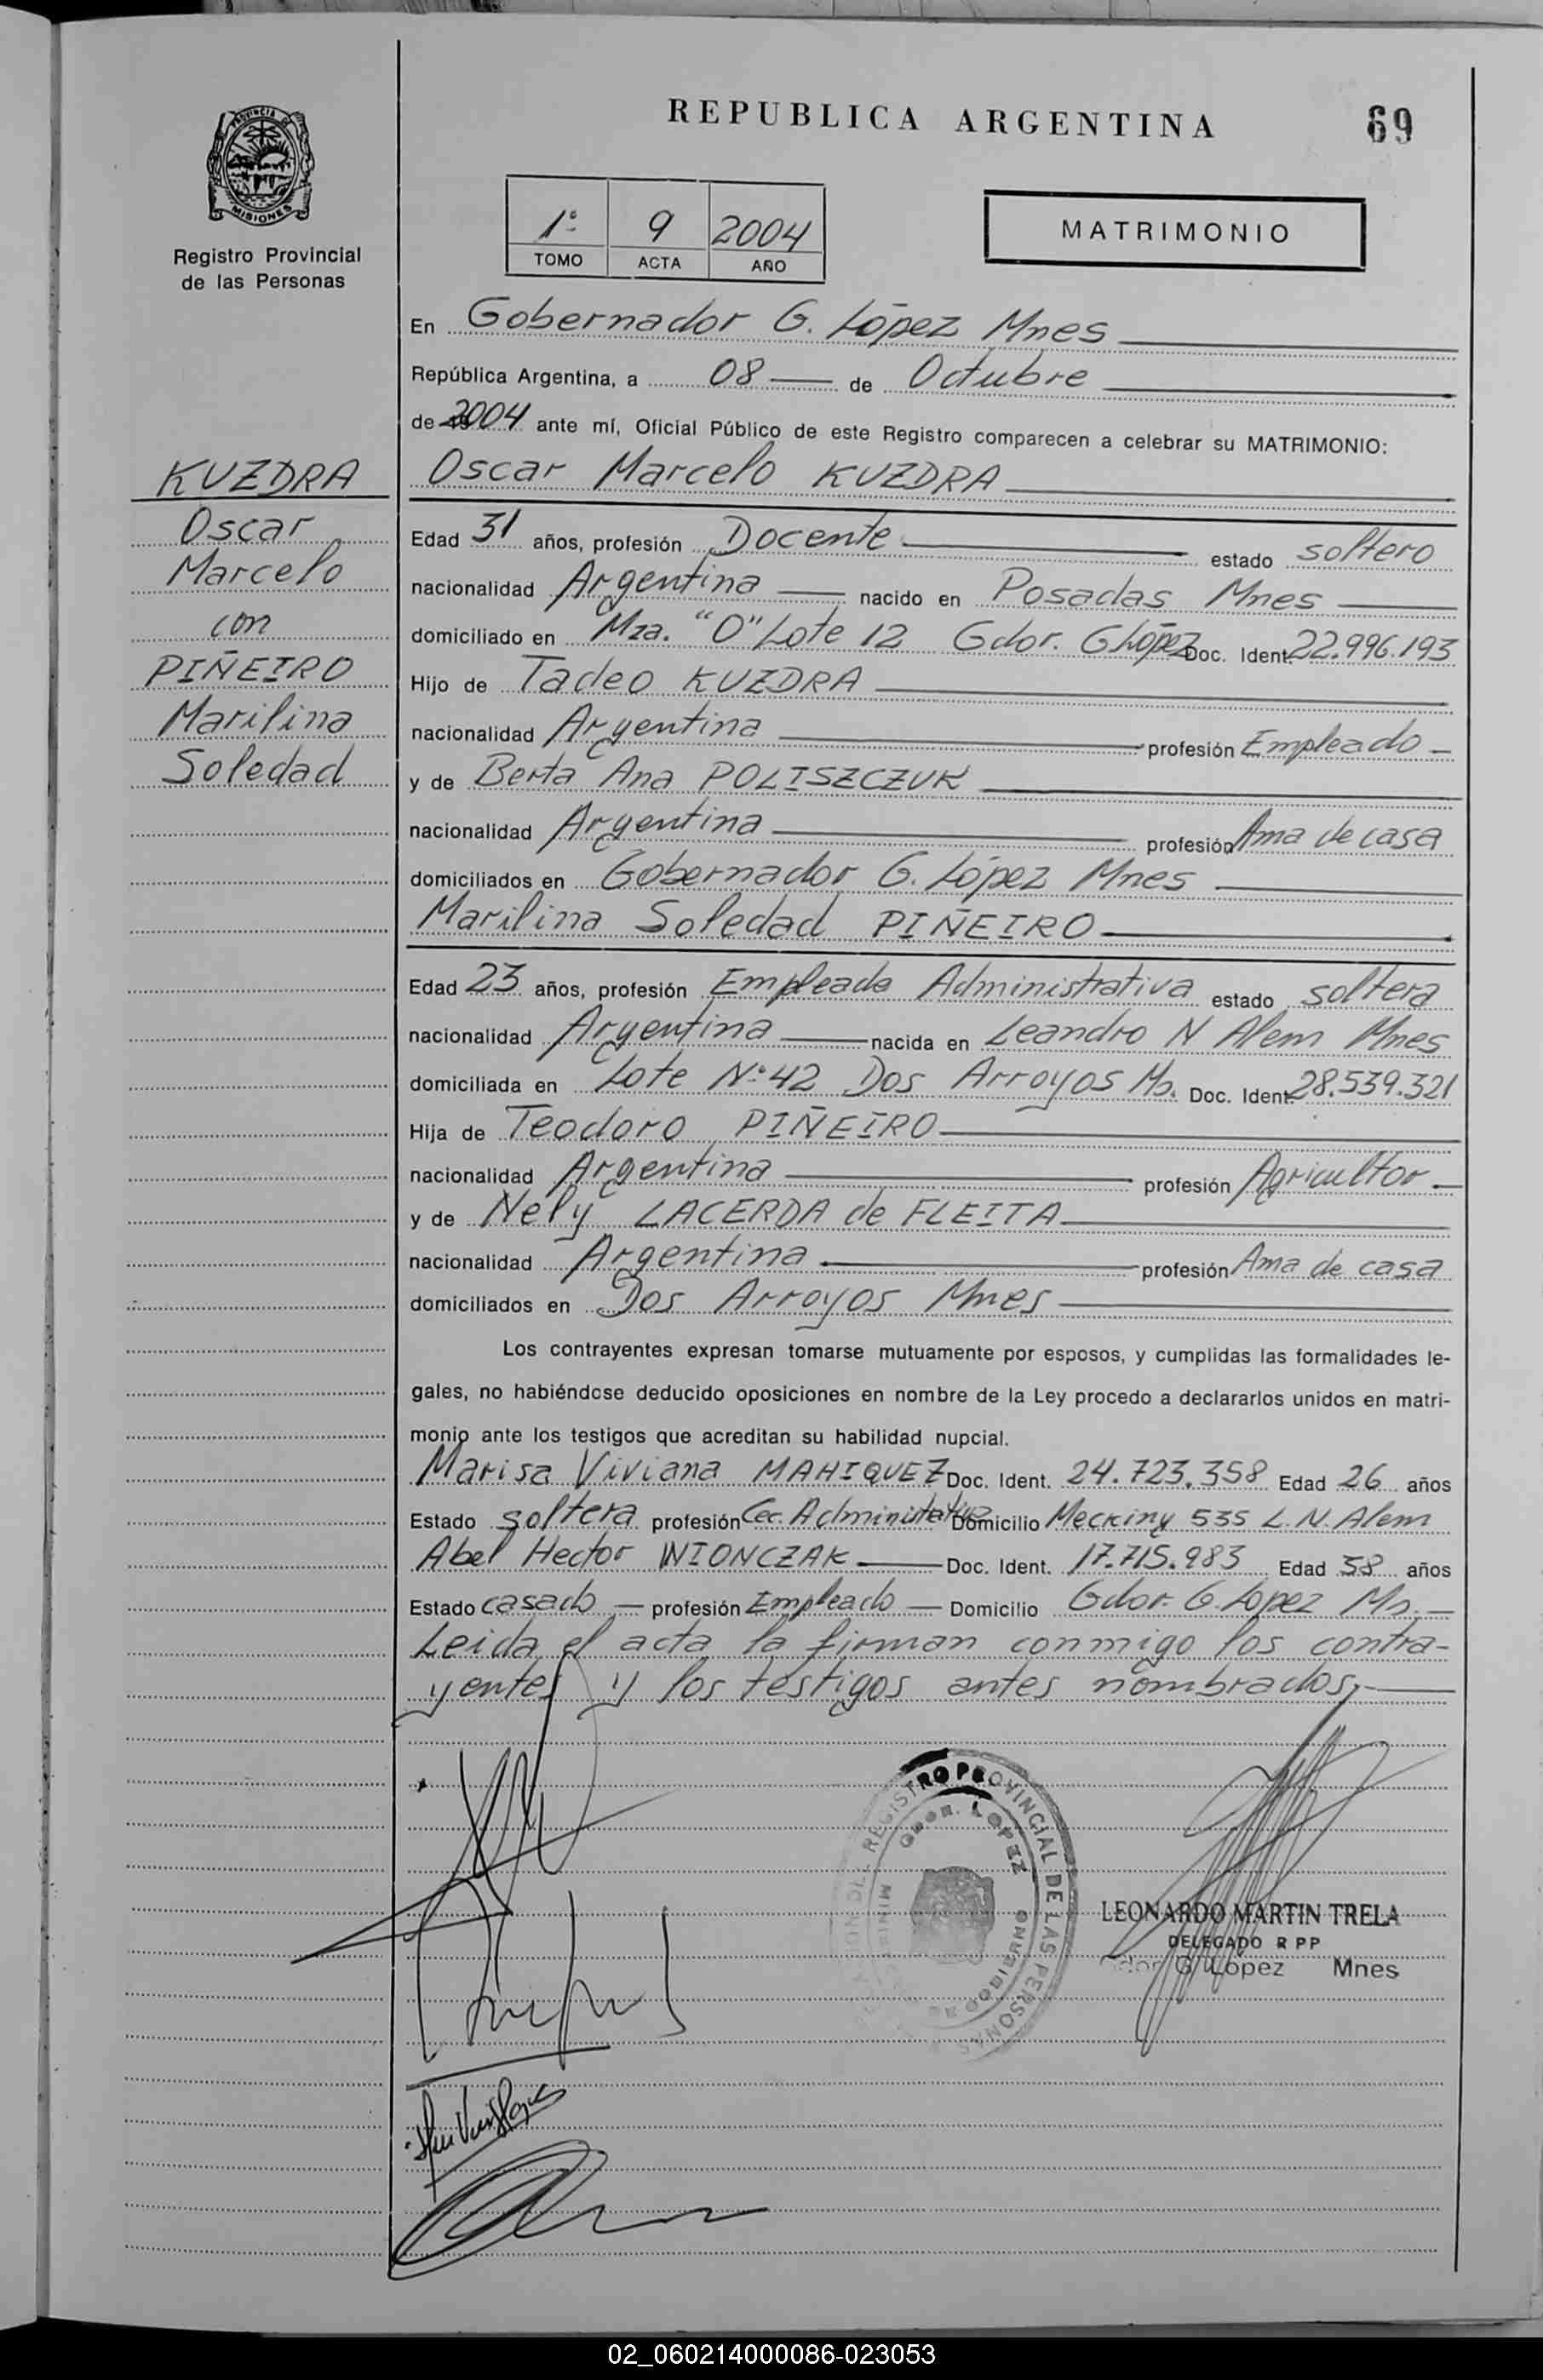 PROVINCIA DE
MISIONES
Registro Provincial
de las Personas
REPUBLICA ARGENTINA
69
1º 9 2004
TOMO ACTA AÑO
MATRIMONIO
En Gobernador G. López Mnes
República Argentina, a 08 de Octubre
de 2004 ante mí, Oficial Público de este Registro comparecen a celebrar su MATRIMONIO:
KUZDRA
Oscar
Marcelo
con
PIÑEIRO
Marilina
Soledad
Oscar Marcelo KUZDRA
Edad 31 años, profesión Docente estado soltero
nacionalidad Argentina nacido en Posadas Mnes
domiciliado en Mza. "O" Lote 12 Gdor. G López Doc. Ident. 22.996.193
Hijo de Tadeo KUZDRA
nacionalidad Argentina profesión Empleado
y de Berta Ana POLISZCZUK
nacionalidad Argentina profesión Ama de casa
domiciliados en Gobernador G. López Mnes
Marilina Soledad PIÑEIRO
Edad 23 años, profesión Empleada Administrativa estado soltera
nacionalidad Argentina nacida en Leandro N Alem Mnes
domiciliada en Lote Nº 42 Dos Arroyos Ms. Doc. Ident. 28.539.321
Hija de Teodoro PIÑEIRO
nacionalidad Argentina profesión Agricultor
y de Nely LACERDA de FLEITA
nacionalidad Argentina profesión Ama de casa
domiciliados en Dos Arroyos Mnes
Los contrayentes expresan tomarse mutuamente por esposos, y cumplidas las formalidades le-
gales, no habiéndose deducido oposiciones en nombre de la Ley procedo a declararlos unidos en matri-
monio ante los testigos que acreditan su habilidad nupcial.
Marisa Viviana MAHIQUEZ Doc. Ident. 24.723.358 Edad 26 años
Estado soltera profesión Administrativa Domicilio Mecking 535 L. N. Alem
Abel Hector WIONCZAK Doc. Ident. 17.715.983 Edad 38 años
Estado casado profesión Empleado Domicilio Gdor. G. Lopez Mn.
Leida el acta la firman conmigo los contra-
yentes y los testigos antes nombrados,
REGISTRO PROVINCIAL DE LAS PERSONAS
GDOR. LOPEZ
LEONARDO MARTIN TRELA
DELEGADO R P P
Gdor G. López Mnes
02_060214000086-023053